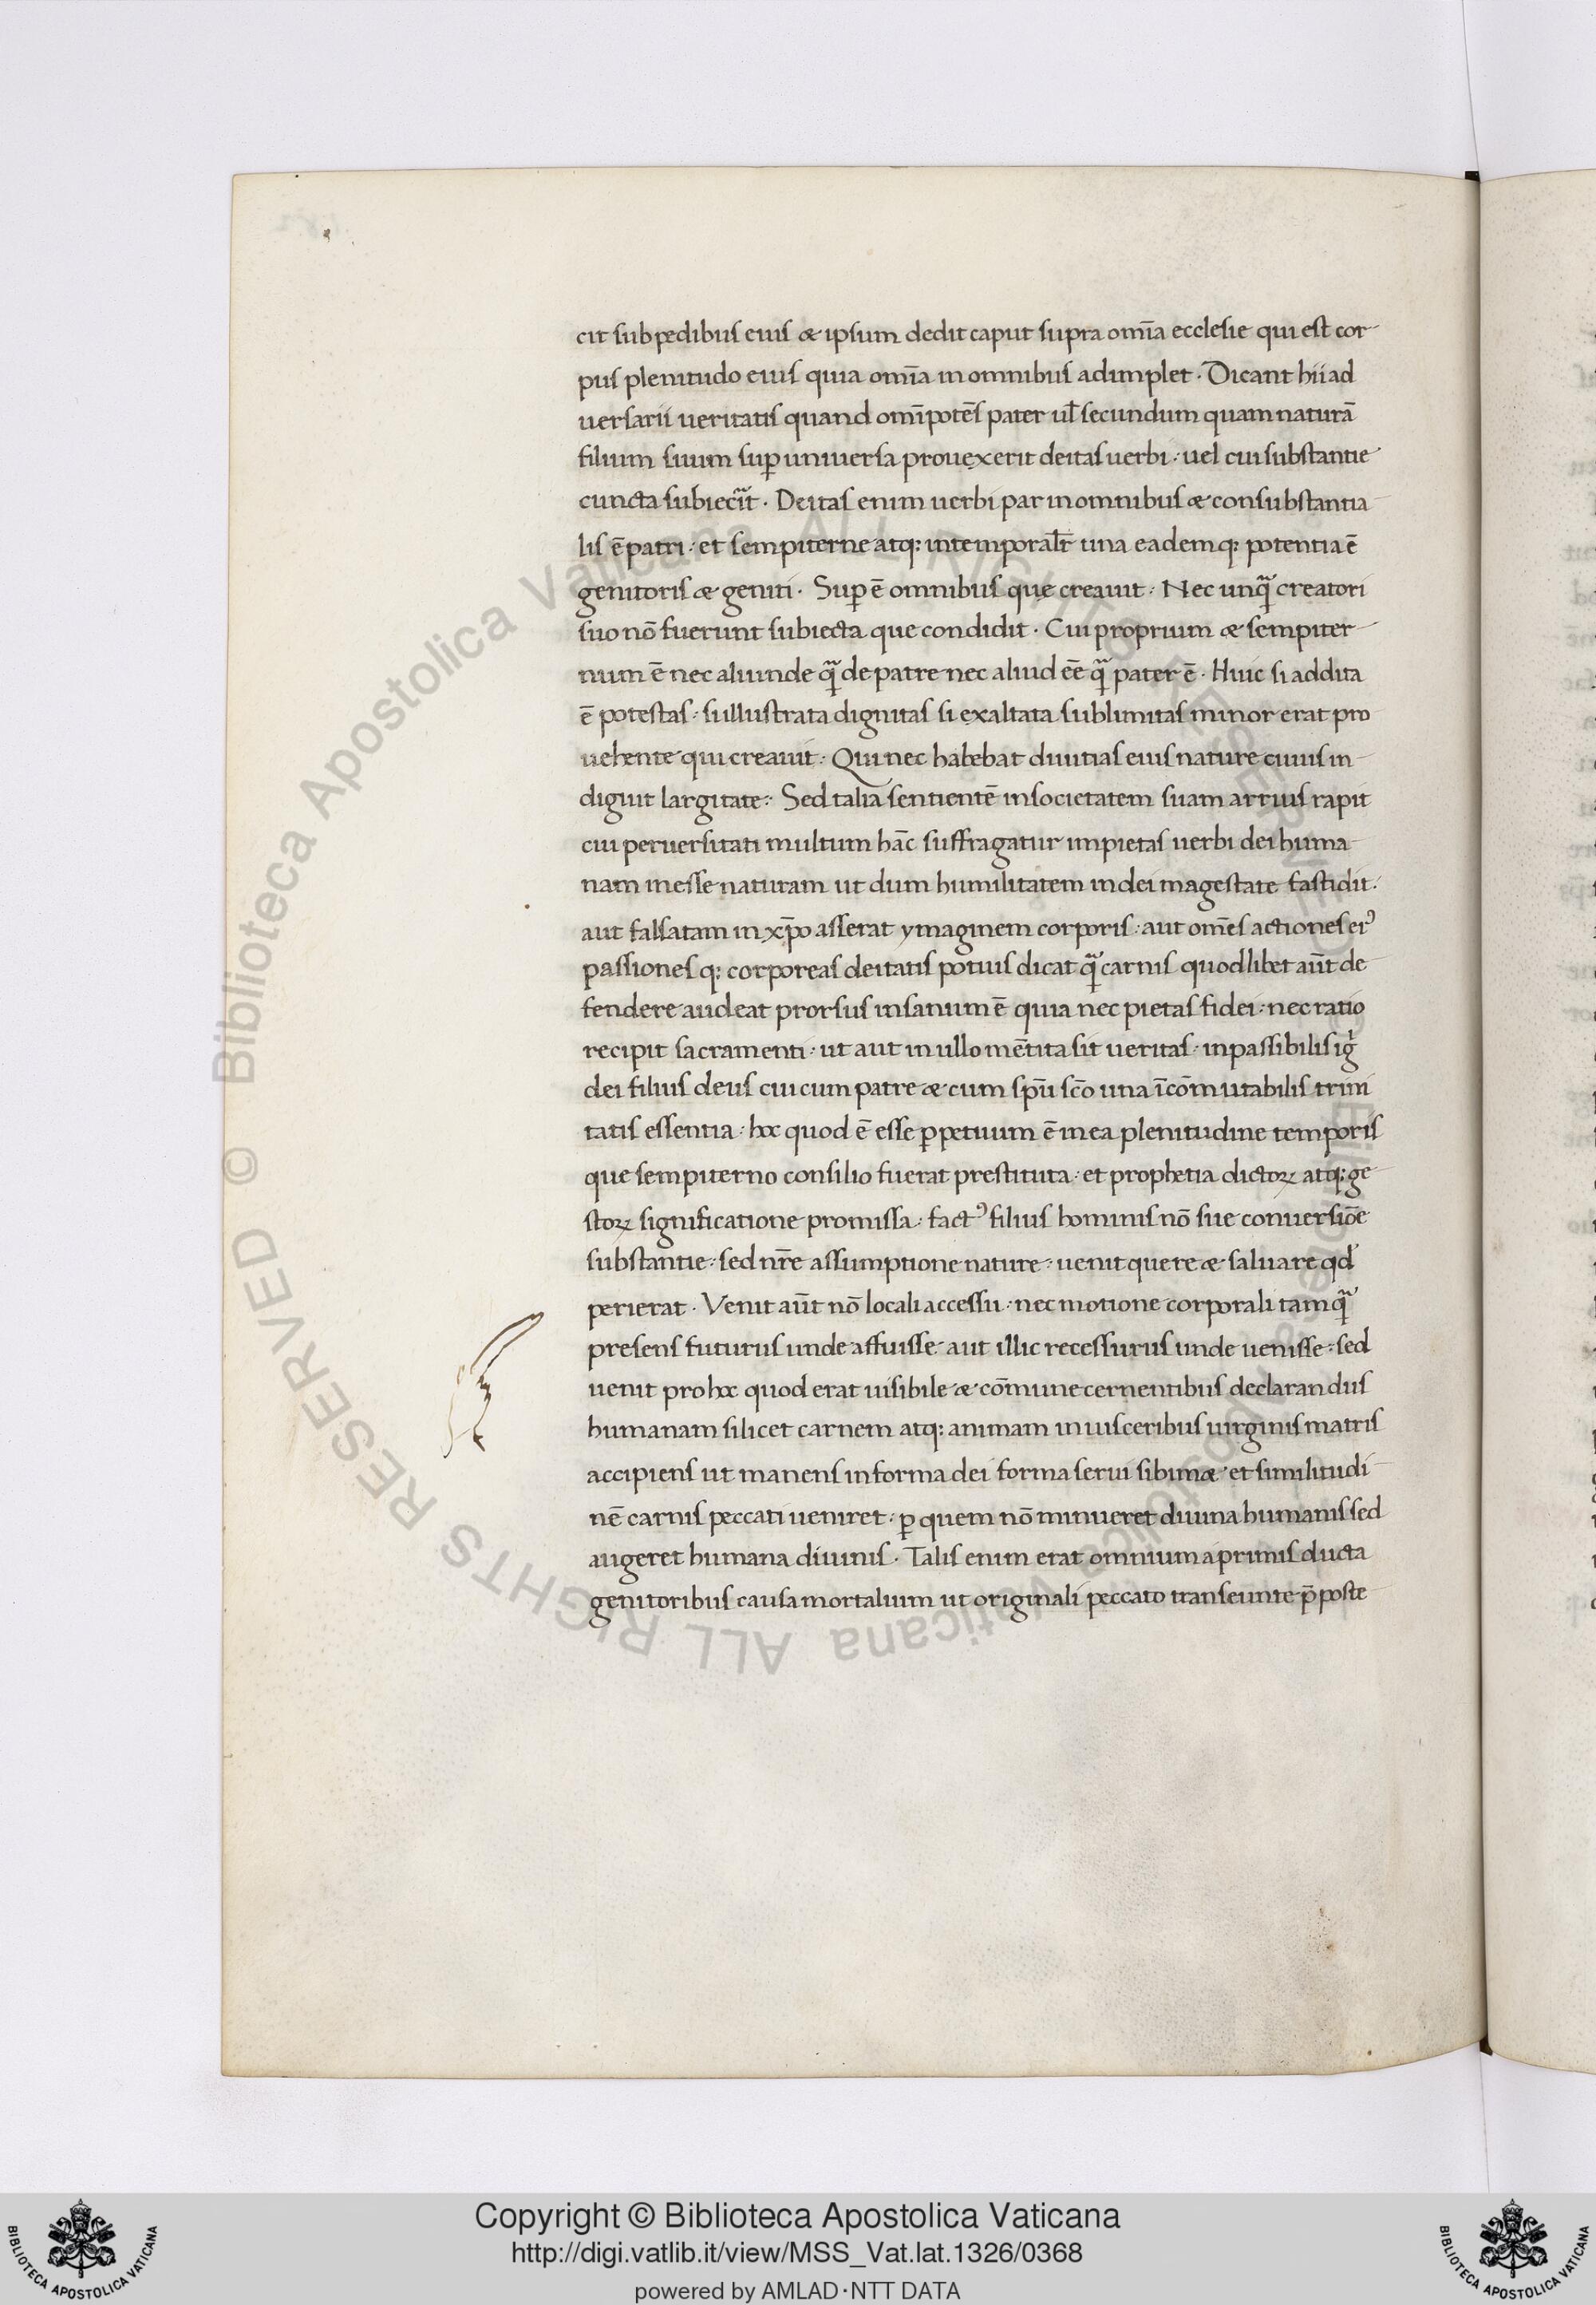 cit sub pedibus eius & ipsum dedit caput supra omīa ecclesie qui est cor
pus plenitudo eius quia omīa in omnibus adimplet · Dicant hii ad
uersarii ueritatis quand omīpotēs pater ul̄ secundum quam naturā
filium suum suꝑ uniuersa prouexerit deitas uerbi : uel cui substantie
cuncta subiecit · Deitas enim uerbi par in omnibus & consubstantia
lis ē patri : et sempiterne atq: intemporalr̄ una eademq: potentia ē
genitoris & geniti · Suꝑ ē omnibus que creauit : Nec unq̄ creatori
suo nō fuerunt subiecta que condidit · Cui proprium & sempiter
num ē nec aliunde q̄ de patre nec aliud ēē q̄ pater ē · Huic si addita
ē potestas : sullustrata dignitas si exaltata sublimitas minor erat pro
uehente qui creauit : Qui nec habebat diuitias eius nature cuius in
diguit largitate : Sed talia sentientē in societatem suam arrius rapit
cui peruersitati multum hāc suffragatur impietas uerbi dei huma
nam inesse naturam ut dum humilitatem in dei magestate fastidit :
aut falsatam in xp̄o asserat ymaginem corporis : aut om̄es actiones eiꝰ
passiones q: corporeas deitatis potius dicat q̄ carnis quodlibet aūt de
fendere audeat prorsus insanum ē quia nec pietas fidei : nec ratio
recipit sacramenti : ut aut in ullo mētita sit ueritas · inpassibilis ig̓
dei filius deus cui cum patre & cum sp̄u sc̄o una īcōmutabilis trini
tatis essentia : hoc quod ē esse ꝑpetuum ē in ea plenitudine temporis
que sempiterno consilio fuerat prestituta : et prophetia dictoꝝ atq: ge
stoꝝ significatione promissa : factꝰ filius hominis nō sue conuersiōe
substantie : sed nr̄e assumptione nature : uenit quere & saluare qd̓
perierat · Venit aūt nō locali accessu : nec motione corporali tamq̄
presens futurus unde affuisse aut illic recessurus unde uenisse : sed
uenit pro hoc quod erat uisibile & cōmune cernentibus declarandus
humanam silicet carnem atq: animam in uisceribus uirginis matris
accipiens ut manens in forma dei forma serui sibimæ et similitudi
nē carnis peccati ueniret : ꝑ quem nō minueret diuina humanis sed
augeret humana diuinis · Talis enim erat omnium a primis ducta
genitoribus causa mortalium ut originali peccato transeunte p̄ poste
Copyright © Biblioteca Apostolica Vaticana
http://digi.vatlib.it/view/MSS_Vat.lat.1326/0368
powered by AMLAD·NTT DATA
BIBLIOTECA APOSTOLICA VATICANA
BIBLIOTECA APOSTOLICA VATICANA
© Biblioteca Apostolica Vaticana ALL RIGHTS RESERVED © Biblioteca Apostolica Vaticana ALL RIGHTS RESERVED